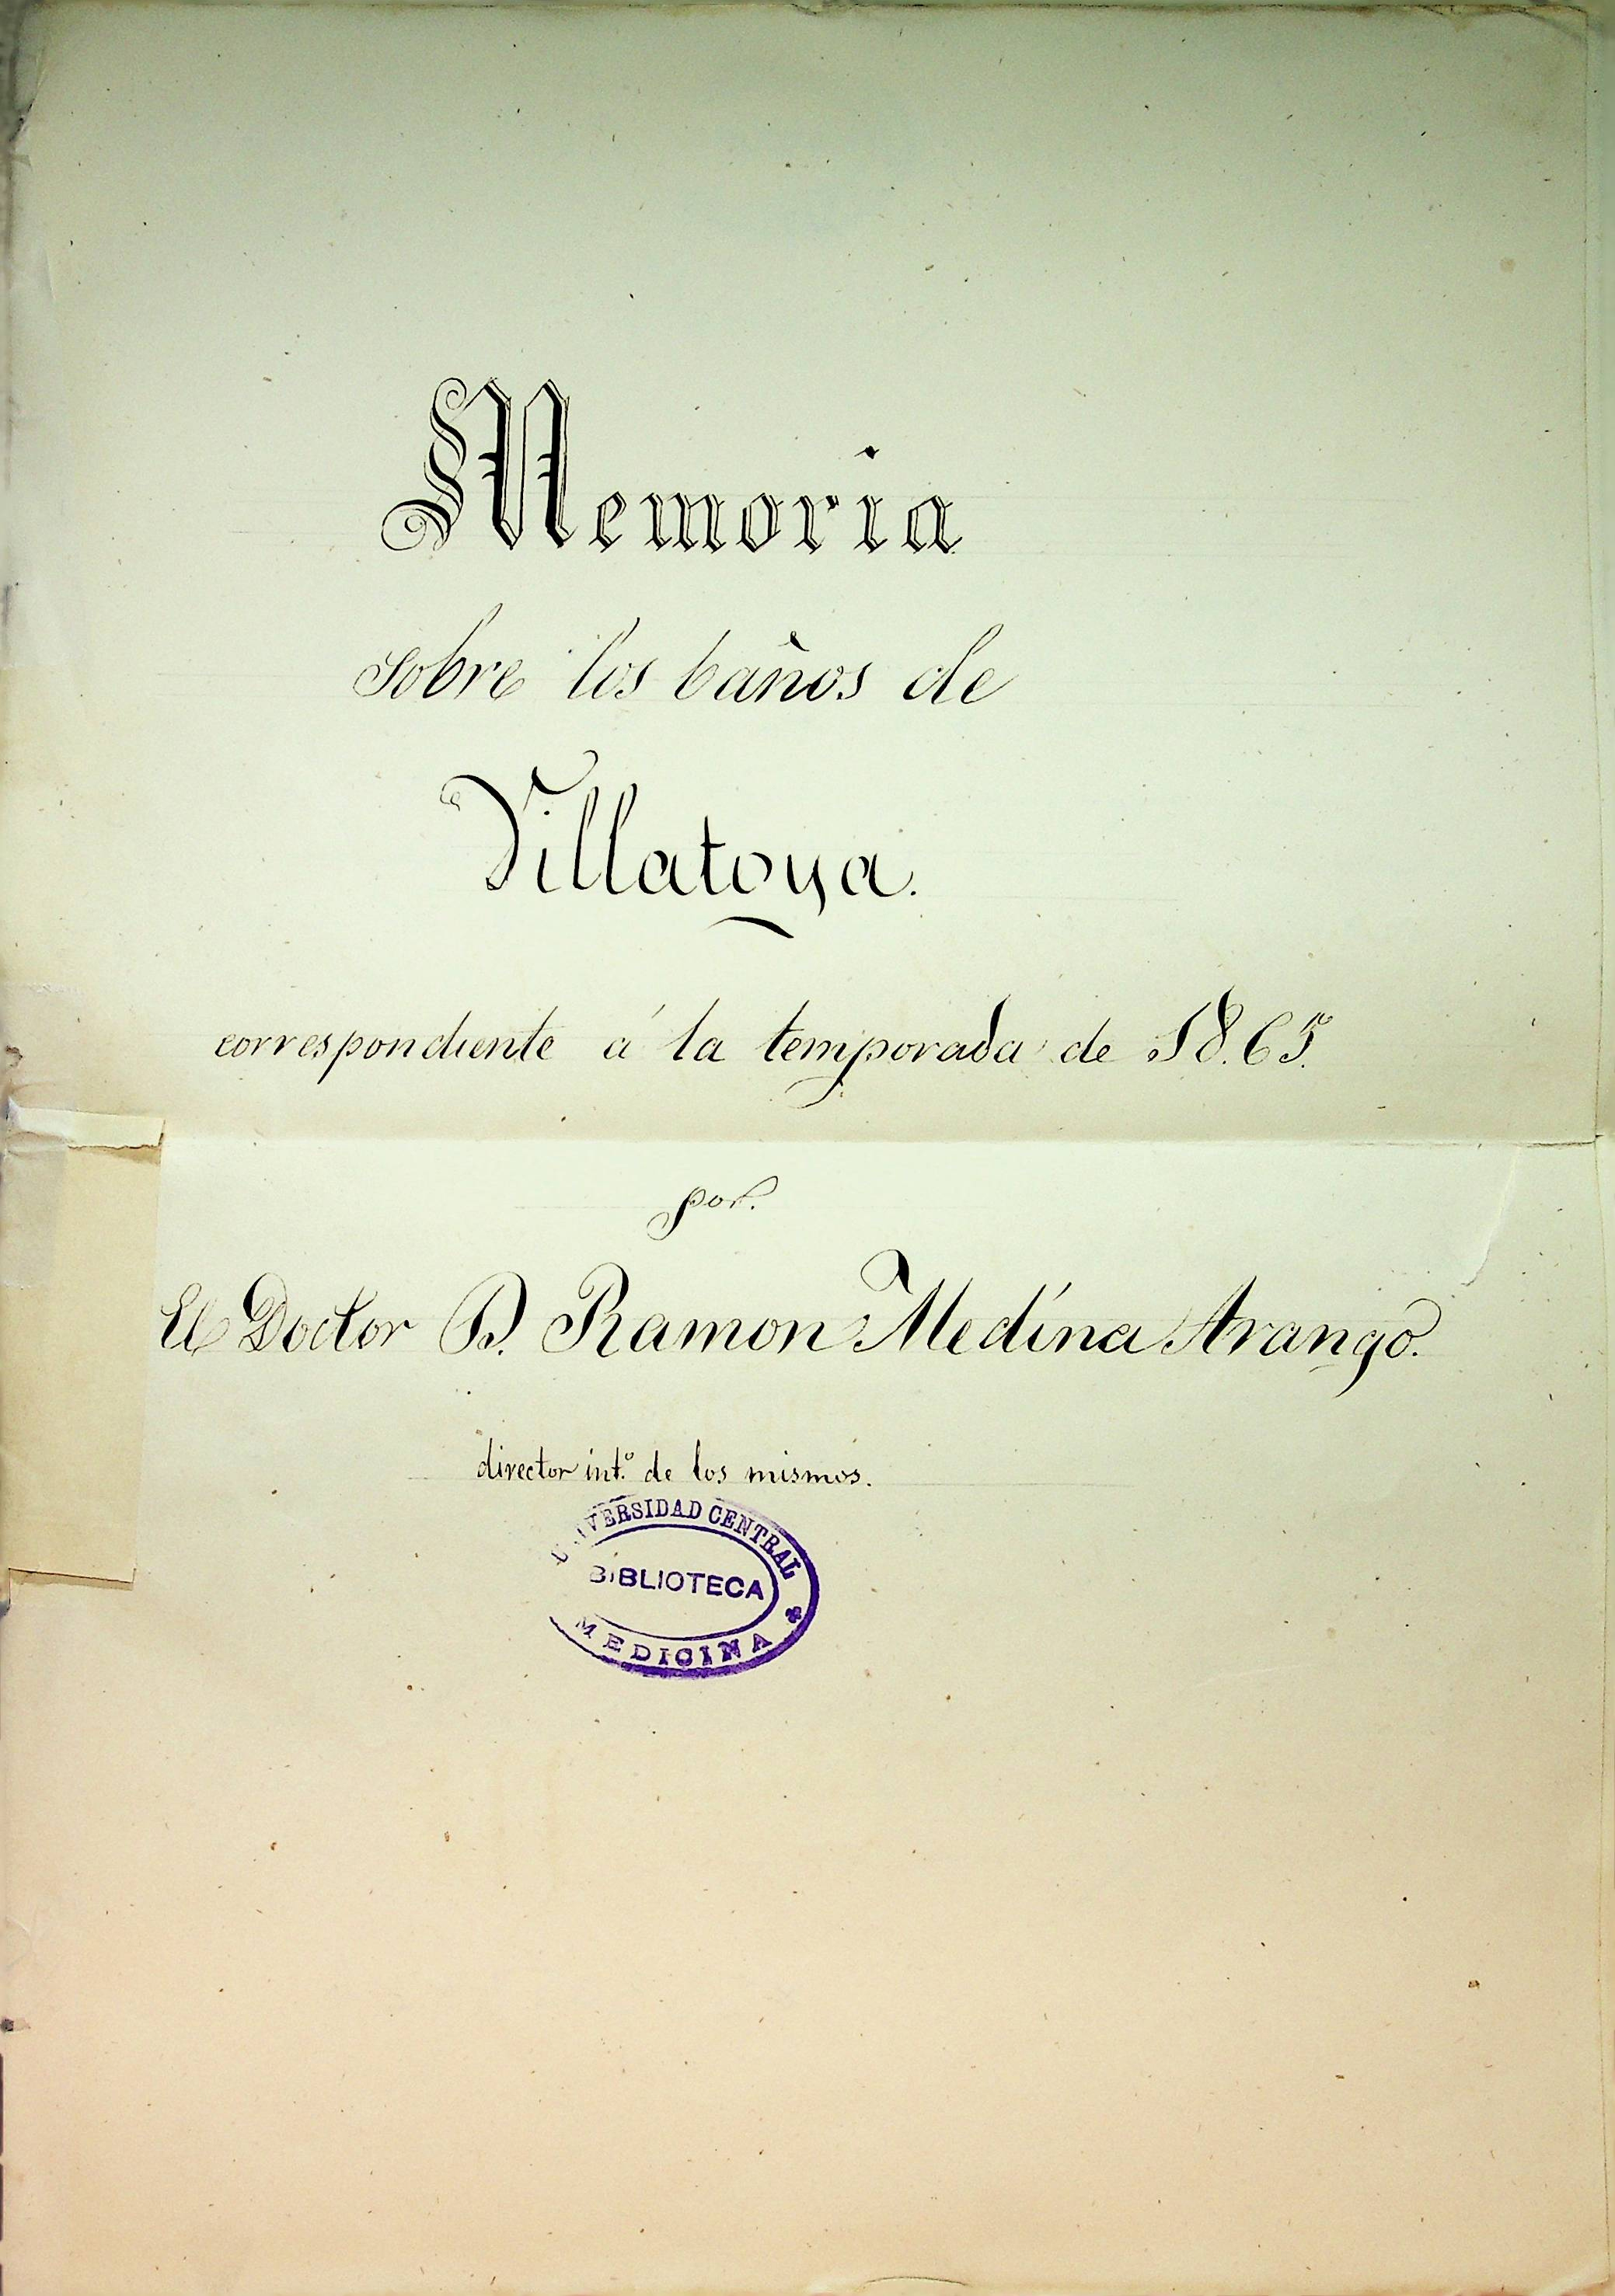 Memoria
sobre los baños de
Villatoya.
correspondiente á la temporada de 18.65.
por.
El Doctor D. Ramon Medina Arango.
director int.º de los mismos.
UNIVERSIDAD CENTRAL
BIBLIOTECA
MEDICINA